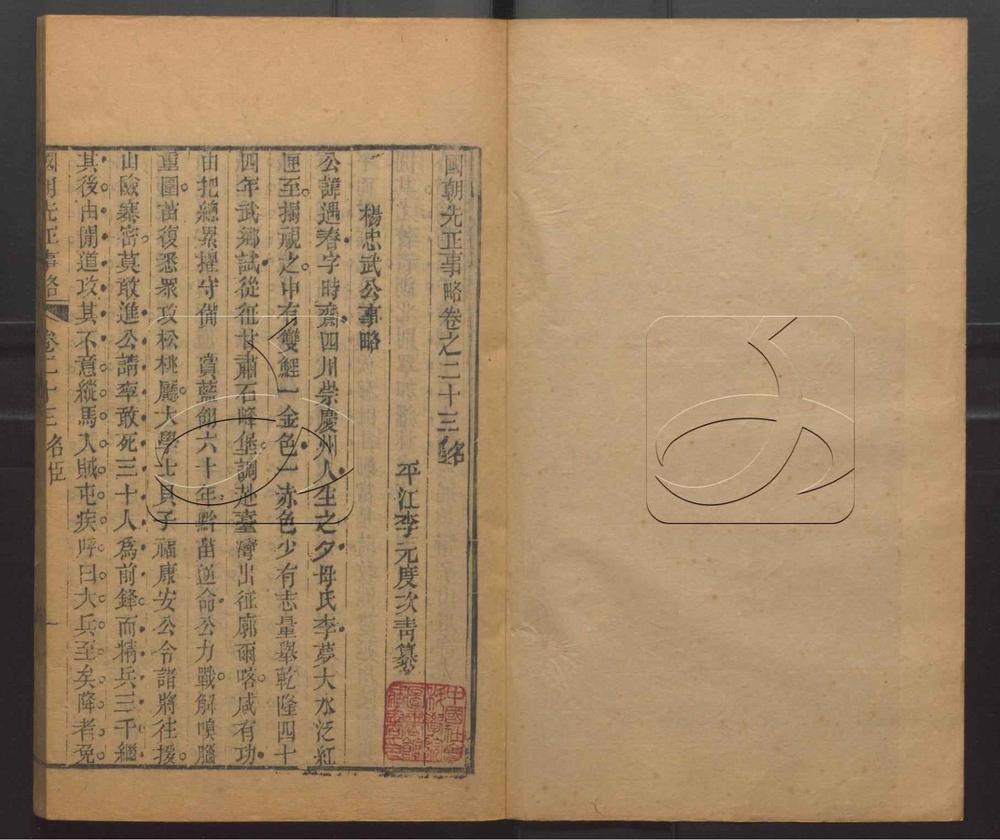 國朝先正事略卷之二十三 名臣
平江李元度次青纂
楊忠武公事略
公諱遇春字時齋四川崇慶州人生之夕母氏李夢大水泛紅
匣至搨視之中有雙鯉一金色一赤色少有志量舉乾隆四十
四年武鄉試從征甘肅石峰堡調赴臺灣出征廓爾喀咸有功
由把總累擢守備 賞藍翎六十年黔苗逆命公力戰解嗅腦
重圍苗復悉眾攻松桃廳大學士貝子福康安公令諸將往援
山險寨密莫敢進公請率敢死三十人為前鋒而精兵三千繼
其後由間道攻其不意縱馬入賊屯疾呼曰大兵至矣降者免
國朝先正事略 卷二十三 名臣 一